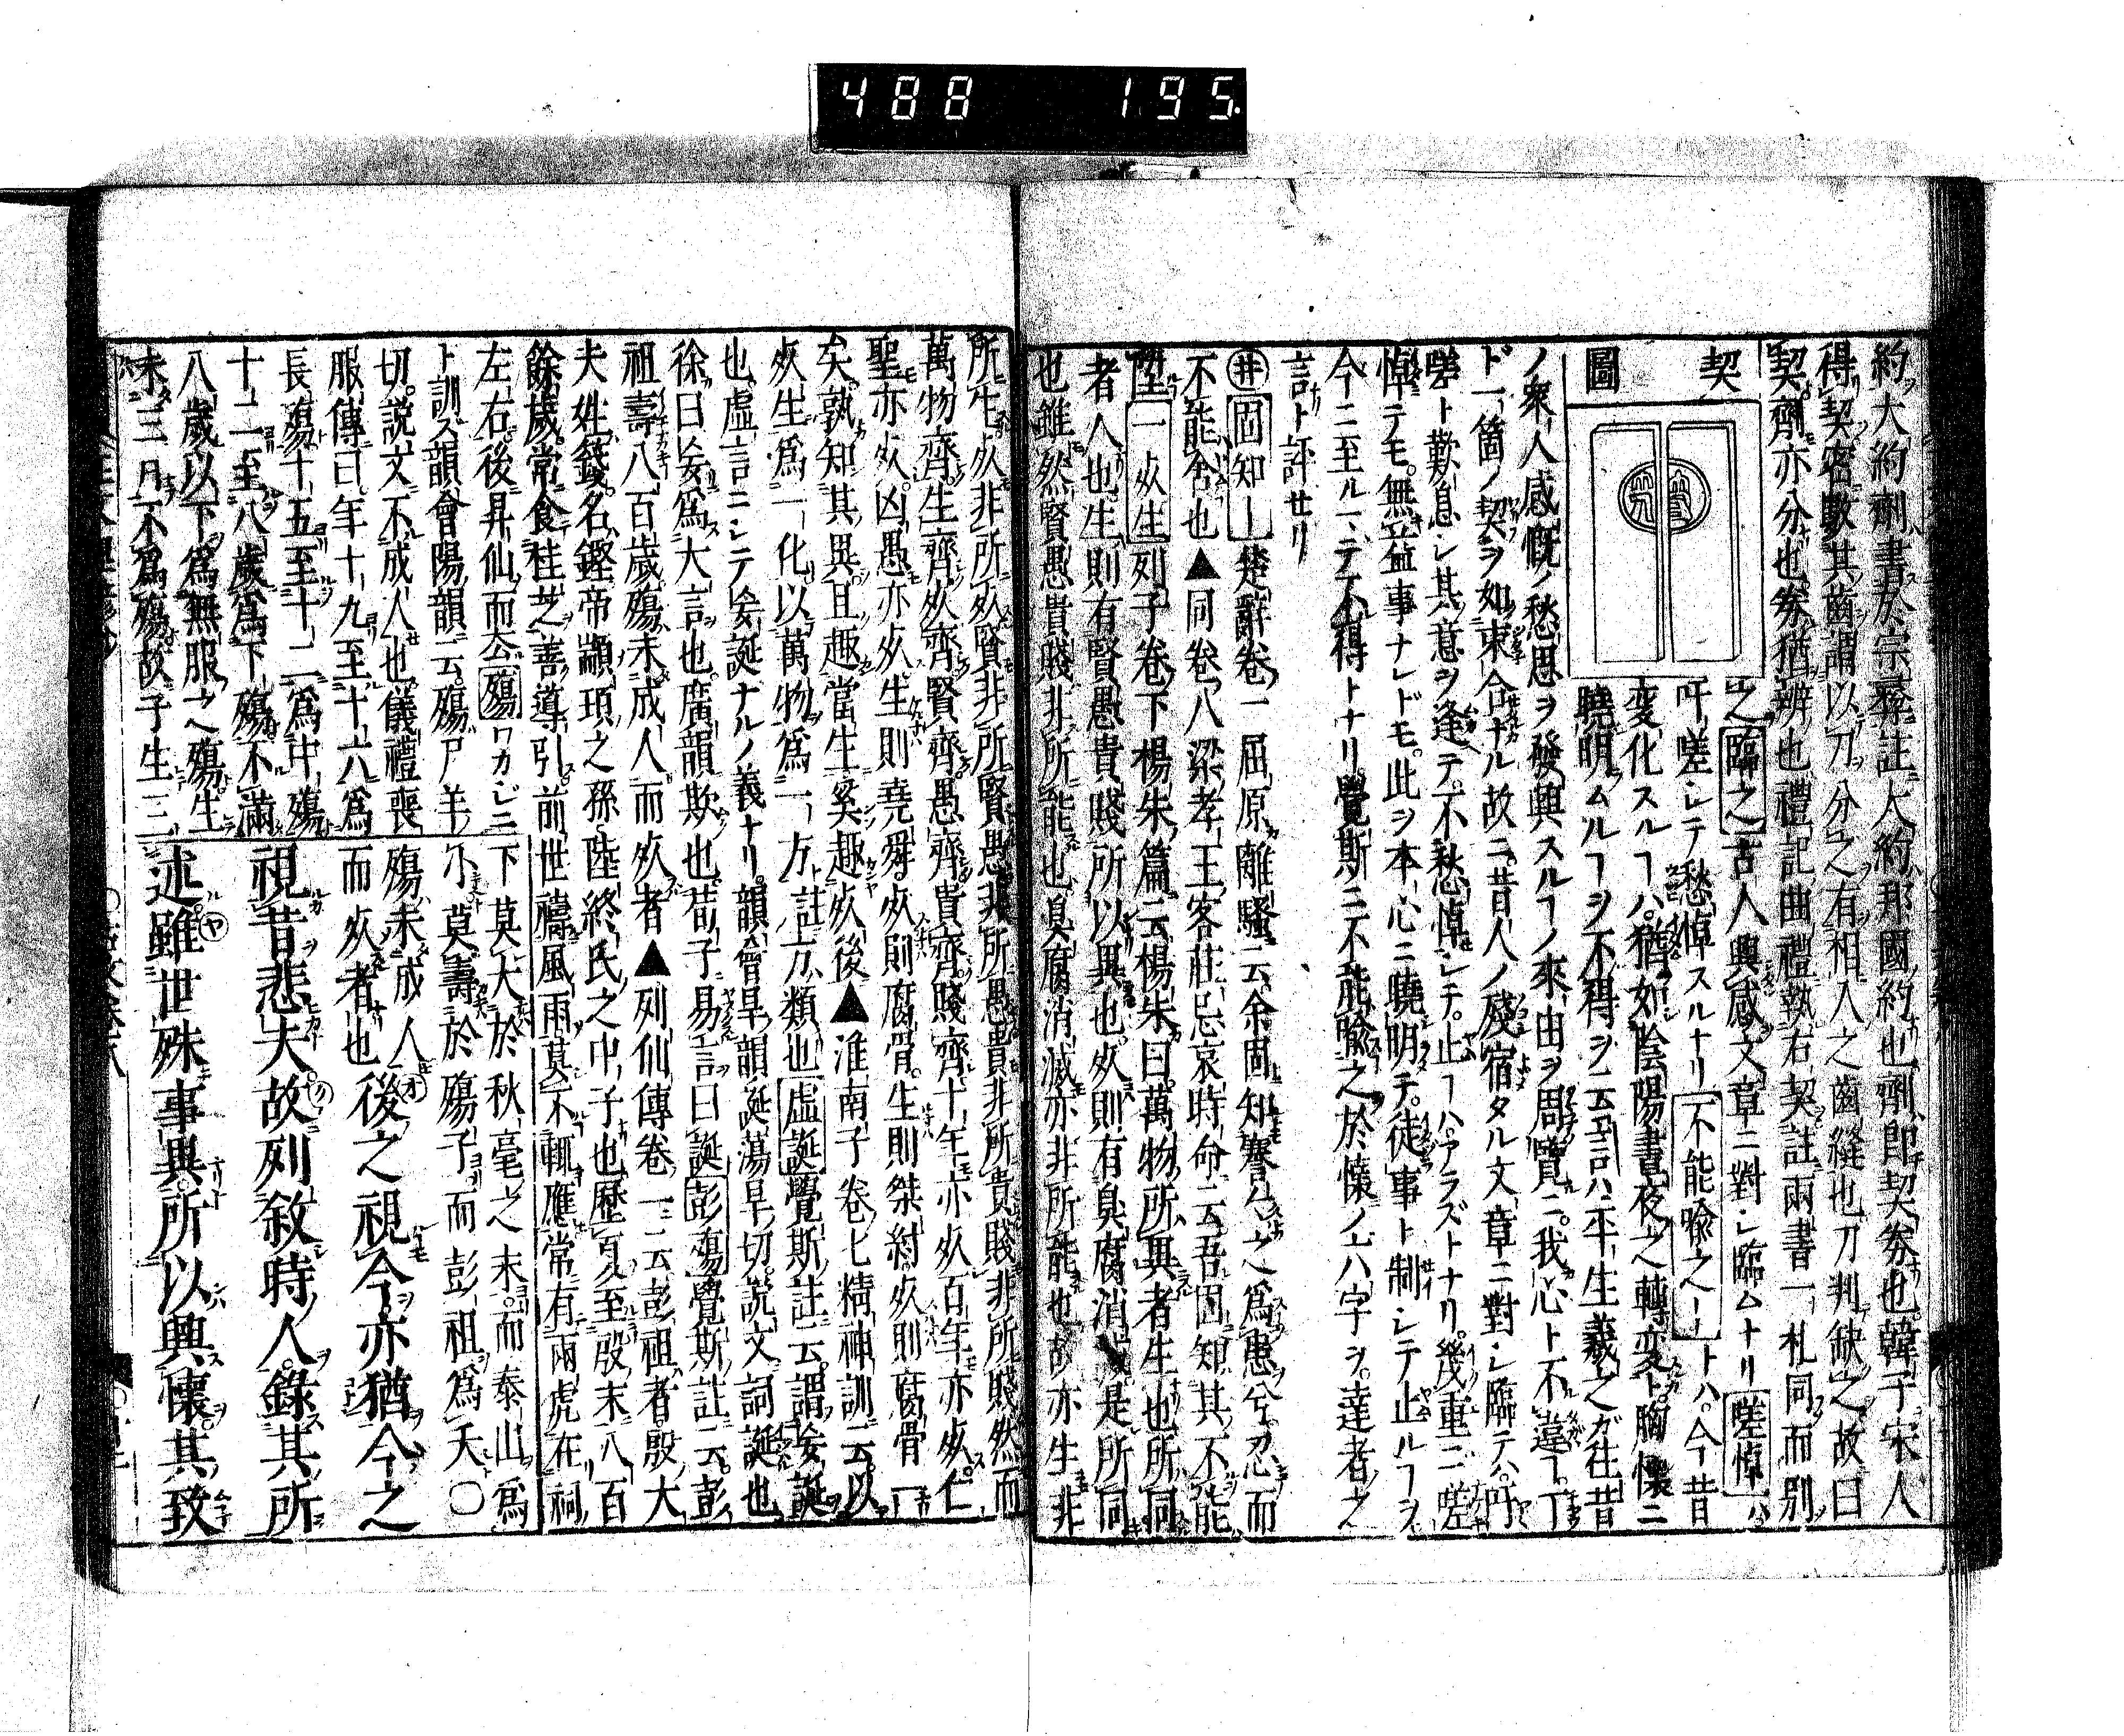 488 195.
約大約劑書於宗彝註大約邦國約也劑即契券也韓子宋人
得契密數其齒謂以刀分之有相入之齒縫也刀判缺之故曰
契劑亦分也券猶辨也禮記曲禮執右契註兩書一札同而別
契
圖
之臨之古人興感文章ニ對シ臨ムトナリ嗟悼ハ
吁嗟シテ愁悼スルナリ不能喻之ートハ今昔
変化スルヿハ猶如陰陽晝夜之轉変ト胸懷ニ
曉明ムルヿヲ不得ヲ云言ハ平生羲之ガ往昔
ノ衆人感慨ノ愁思ヲ發興スルヿノ來由ヲ周覽ニ我心ト不違丁
ド一箇ノ契ヲ如東合ナル故ニ昔人ノ殘宿タル文章ニ對シ臨テハ吁
嗟ト歎息シ其意ヲ逢テ不愁悼シテ止ヿハアラズトナリ幾重ニ嗟
悼テモ無益事ナレドモ此ヲ本心ニ曉明テ徒事ト制シテ止ルヿヲ
今ニ至ルニテ不得トナリ覺斯ニ不能喻之於懷ノ六字ヲ達者之
言ト評セリ
井固知ー楚辭卷一屈原離騷云余固知謇謇之爲患兮忍而
不能舍也▲同卷八梁孝王客莊忌哀時命云吾固知其不能
陞一死生列子卷下楊朱篇云楊朱曰萬物所異者生也所同
者人也生則有賢愚貴賤所以異也死則有臭腐消滅是所同
也雖然賢愚貴賤非所能也臭腐消滅亦非所能也故亦生非
所生死非所死賢非所賢愚非所愚貴非所貴賤非所賤然而
萬物齊生齊死齊賢齊愚齊貴齊賤齊十年亦死百年亦死仁
聖亦死凶愚亦死生則堯舜死則腐骨生則桀紂死則腐骨一
矣孰知其異且趣當生奚趣死後▲淮南子卷七精神訓云以
死生爲一化以萬物爲一方註方類也虛誕覺斯註云謂妄誕
也虛言ニシテ妄誕ナルノ義ナリ韻會旱韻誕蕩旱切說文詞誕也
徐曰妄爲大言也廣韻欺也荀子易言曰誕彭殤覺斯註云彭
祖壽八百歲殤未成人而死者▲列仙傳卷一云彭祖者殷大
夫姓籛名鏗帝顓頊之孫陸終氏之中子也歷夏至殷末八百
餘歲常食桂芝善導引前世禱風雨莫不輒應常有兩虎在祠
左右後昇仙而去殤ワカジニ
ト訓ズ韻會陽韻云殤尸羊
切說文不成人也儀禮喪
服傳曰年十九至十六爲
長殤十五至十二爲中殤
十一至八歲爲下殤不滿
八歲以下爲無服之殤生
未三月不爲殤故子生三
下莫大於秋毫之末而泰山爲
小莫壽於殤子而彭祖爲夭〇
殤未成人
而死者也後之視今亦猶今之
視昔悲夫故列敘時人錄其所
述雖世殊事異所以興懷其致